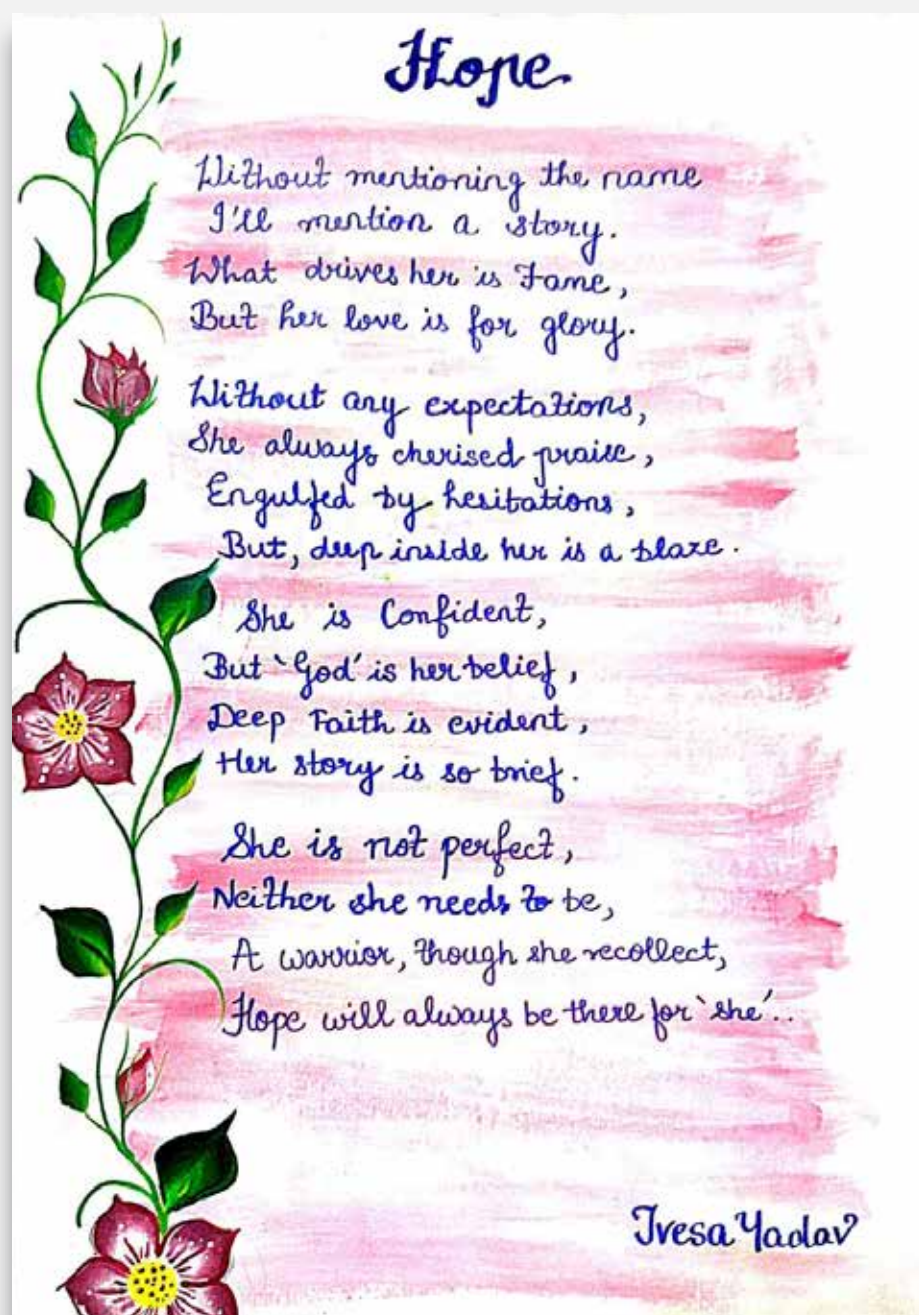 Hope
Without mentioning the name
I'll mention a story.
What drives her is Fame,
But her love is for glory.
Without any expectations,
She always cherised praise,
Engulfed by hesitations,
But, deep inside her is a blaze.
She is Confident,
But 'God' is her belief,
Deep Faith is evident,
Her story is so brief.
She is not perfect,
Neither she needs to be,
A warrior, though she recollect,
Hope will always be there for 'she'..
Ivesa Yadav